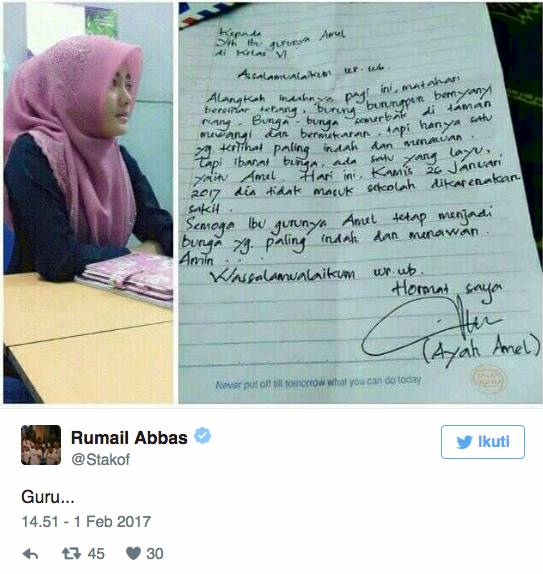 Kepada
Yth Ibu gurunya Amel
di Kelas VI
Assalamualaikum wr. wb.
Alangkah indahnya pagi ini, matahari
bersinar terang, burung burungpun bernyanyi
riang. Bunga-bunga semerbak di taman
mewangi dan bermekaran. tapi hanya satu
yg. terlihat paling indah dan menawan.
Tapi ibarat bunga, ada satu yang layu,
yaitu Amel. Hari ini, Kamis 26 Januari
2017 dia tidak masuk sekolah dikarenakan
sakit.
Semoga Ibu gurunya Amel tetap menjadi
bunga yg. paling indah dan menawan.
Amin . . .
Wassalamualaikum wr. wb.
Hormat saya
(Ayah Amel)
Never put off till tomorrow what you can do today
Rumail Abbas
@Stakof
Ikuti
Guru...
14.51 - 1 Feb 2017
45
30